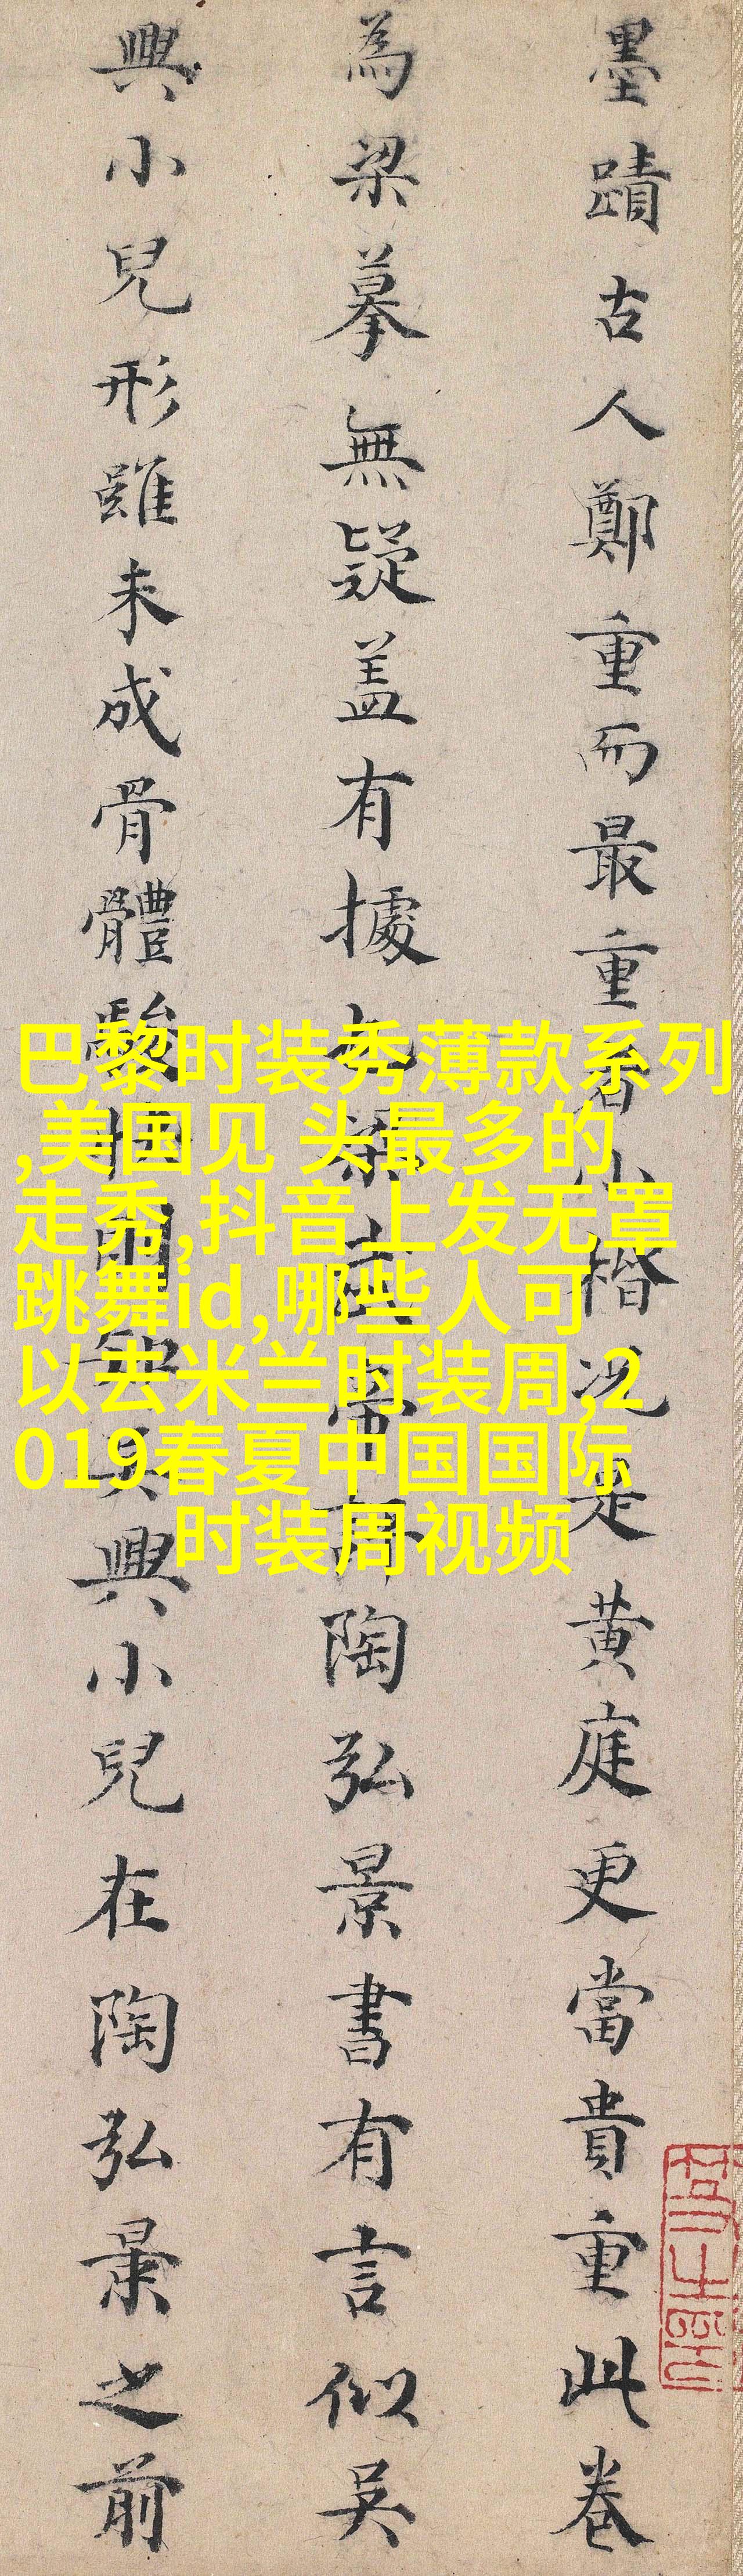 墨蹟古人鄭重而最重者小楷况是黄庭更當貴重此卷
為梁摹無疑盖有據也梁武帝評陶弘景書有言似吳
興小兒形雖未成骨體駿快吳興小兒在陶弘景之前
巴黎时装秀薄款系列
,美国见 头最多的
走秀,抖音上发无罩
跳舞id,哪些人可
以去米兰时装周,2
019春夏中国国际
时装周视频